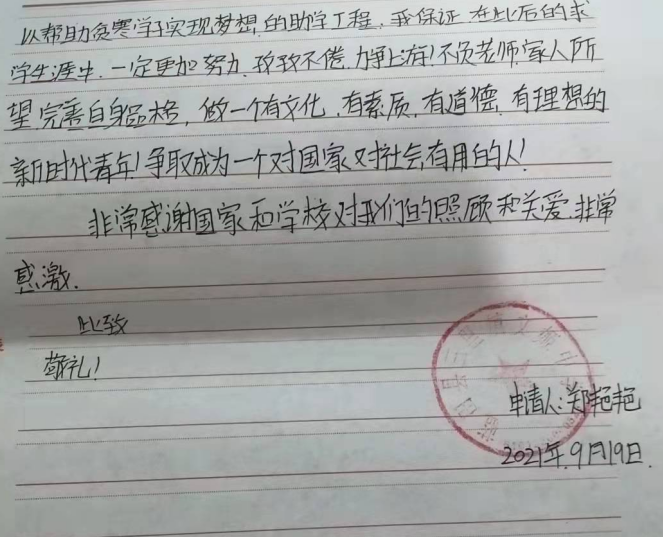 以帮助贫寒学子实现梦想的助学工程,我保证在此后的求
学生涯中,一定更加努力,孜孜不倦,力争上游!不负老师家人所
望,完善自身品格,做一个有文化,有素质,有道德,有理想的
新时代青年!争取成为一个对国家对社会有用的人!
非常感谢国家和学校对我们的照顾和关爱,非常
感激.
此致
敬礼!
申请人:郑艳艳
2021年9月19日